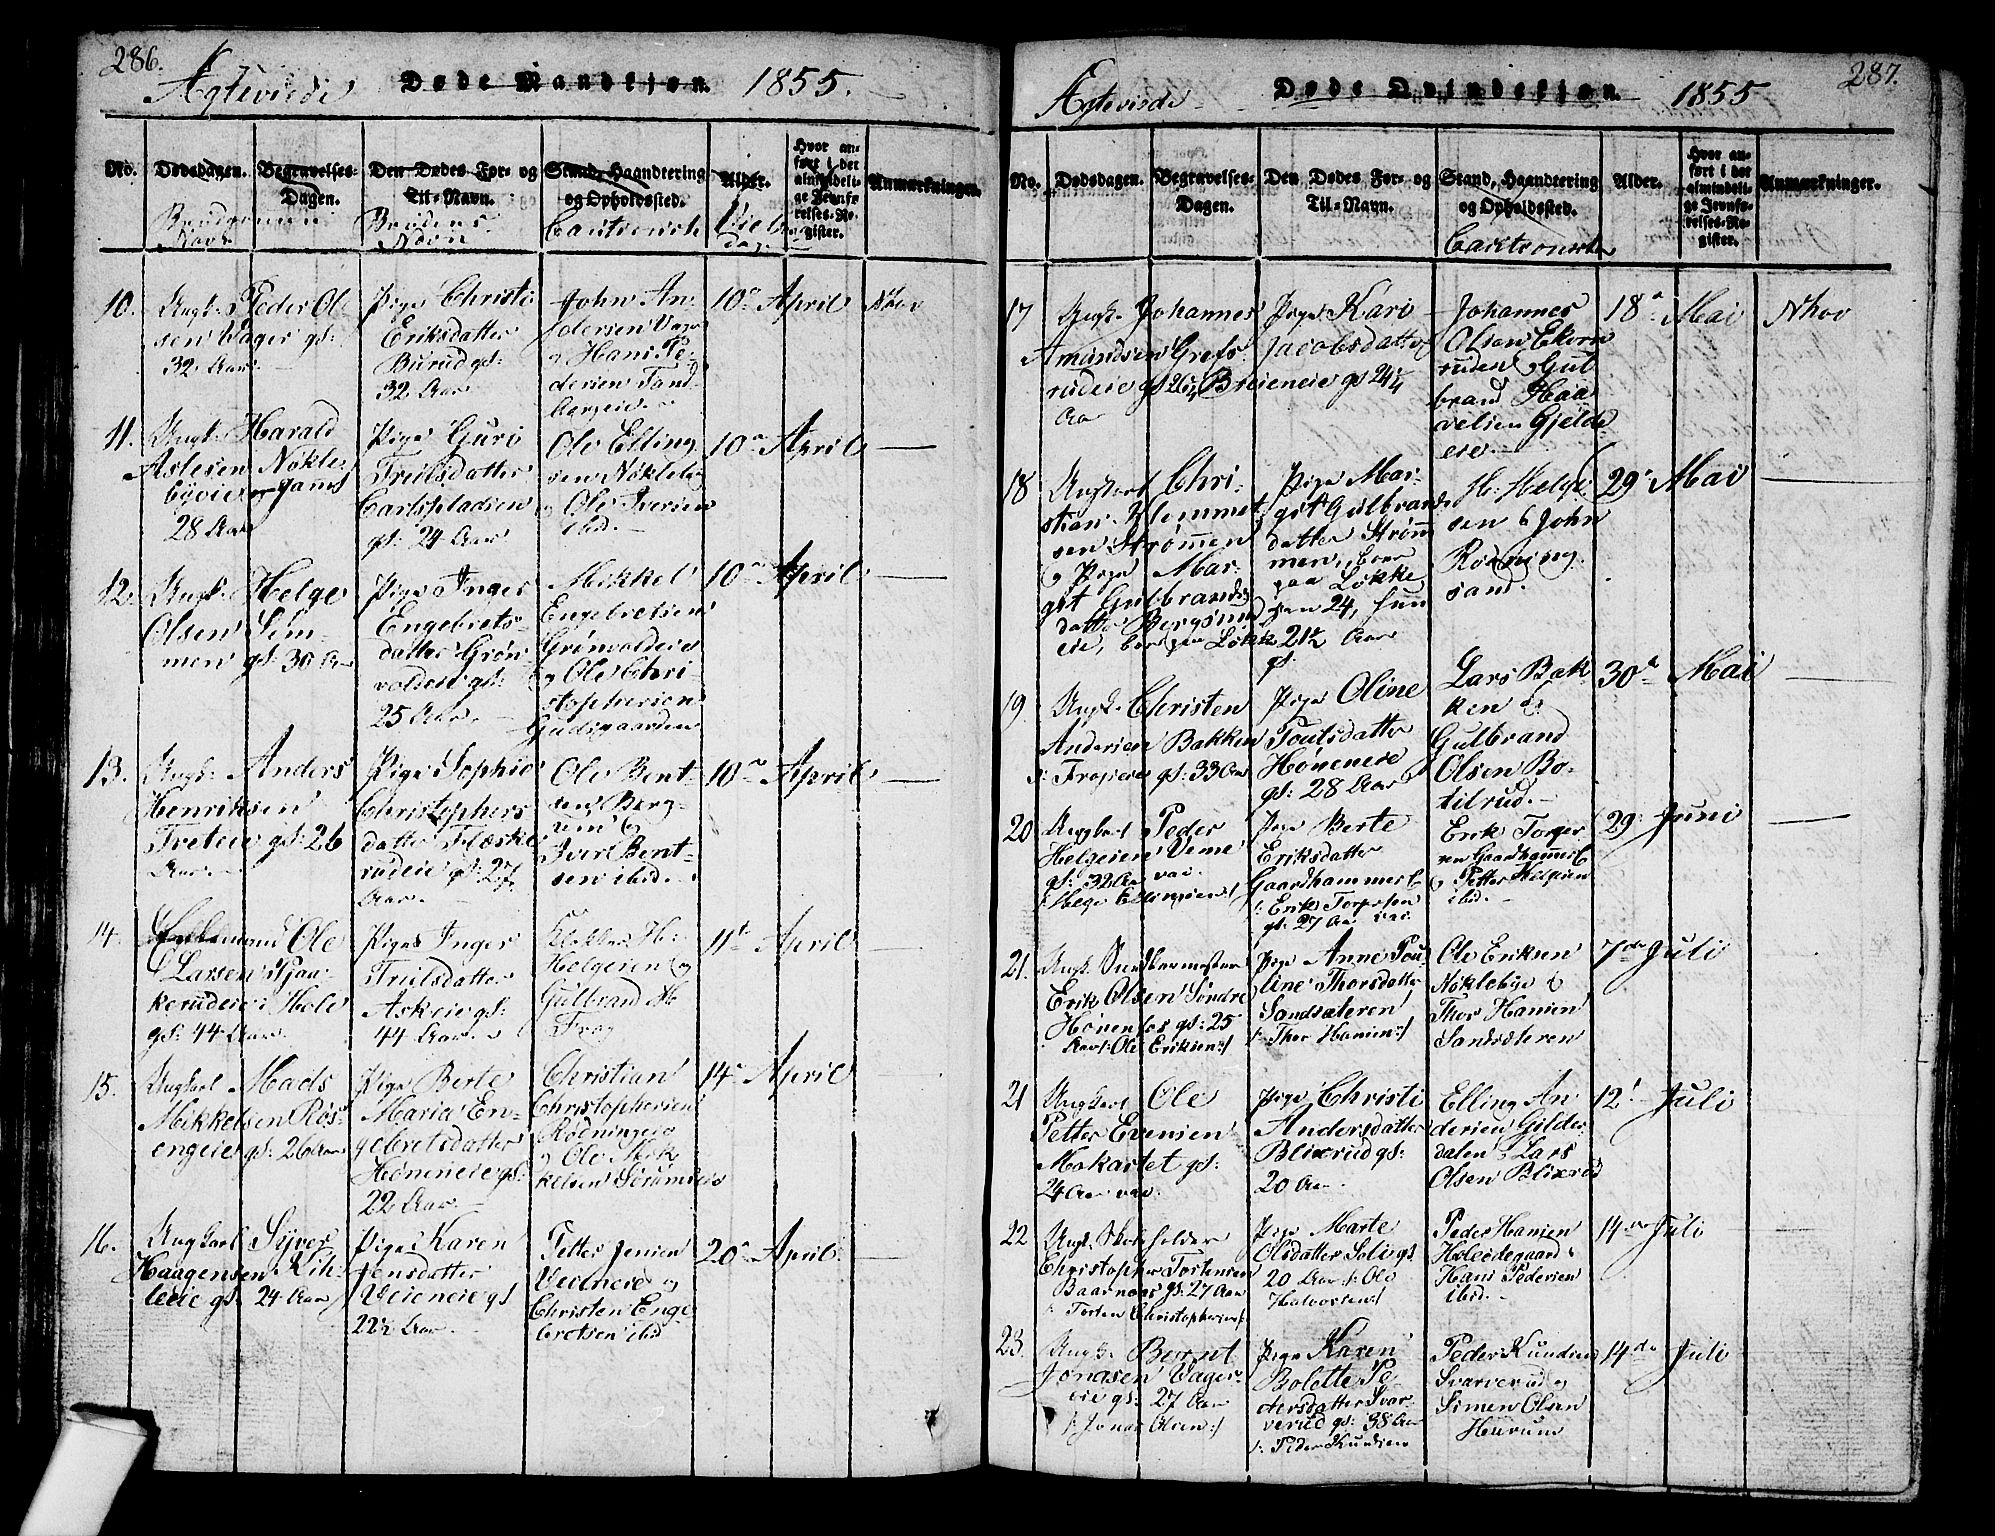 286.
Ægteviede Døde Mandkjøn. 1855.
No. Dødsdagen. Begravelses-Dagen. Den Dødes For- og Til-Navn. Stand, Haandtering og Opholdssted. Alder. Hvor anført i det almindelige Jevnførelses-Register. Anmærkninger.
Brudgommens Navn
Brudens Navn
10. Ungk. Peder Ol
sen Vager gl:
32 Aar.
Pige Christi
Eriksdatter
Burud gl:
32 Aar
John An
dersen Vager
Hans Pe
dersen Tand
bergeie.
10de April Nhov
11. Ungk. Harald
Aslesen Nökle
byeie
28 Aar
Pige Guri
Truilsdatter
gl: 24 Aar
Ole Elling
sen Nökleby
Ole Iversen
ibid.
10de April
12. Ungk. Helge
Olsen Sem
men gl: 30 Aar
Pige Inger
Engebrets-
datter Grön
voldeie gl:
25 Aar.
Mikkel
Engebretsen
Grönvoldeie
Ole Chri
stophersen
Gudsgaarden
10de April
13. Ungk. Anders
Henriksen
Treteie gl: 26
Aar.
Pige Sophie
Christophers
datter Flæske
rudeie gl: 27
Aar.
Ole Bent-
sen Berg-
Iver Bent-
sen ibid.
10de April
14. Enkemand Ole
Larsen
kerudeie i Hole
gl: 44 Aar.
Pige Inger
Truilsdatter
Askeie gl:
44 Aar.
Helgesen
Gulbrand H
Frog
11te April
15. Ungkarl Mads
Mikkelsen Rös-
engeie gl: 26 Aar
Pige Berte
Maria En-
gebretsdatter
Höneneie gl:
22 Aar.
Christian
Christophersen
Rödningeie
Ole Mik
kelsen
14de April
16. Ungkarl Syver
Haagensen Kih-
leeie gl: 24 Aar
Pige Karen
Jensdatter
Veieneie gl
22½ Aar.
Petter Jensen
Veieneie og
Christen Enge
bretsen ibid
20de April
287.
Ægteviede Døde Qvindekjøn. 1855
No. Dødsdagen. Begravelses-Dagen. Den Dødes For- og Til-Navn. Stand, Haandtering og Opholdssted. Alder. Hvor anført i det almindelige Jevnførelses-Register. Anmærkninger.
17 Ungk. Johannes
Amundsen Grefs
rudeie gl
Aar
Pige Kari
Jacobsdatter
Breieneie gl 24¼
Johannes
Olsen Ekorn
ruden Gul
brand Haa
velsen Gjelde
eie.
18de Mai Nhov
18 Ungkarl Chri-
stian Klemmet
sen Strømmen
og Pige Mar-
git Gulbrands
datter
Pige Mar-
git Gulbrands
datter Strøm
men, boer
paa Løkke
24, hun
21½ Aar
H. Helge
sen & John
Rödning
sand.
29de Mai
19. Ungk. Christen
Andersen Bakken
gl: 33 Aar
Pige Oline
Poulsdatter
Höneneie
gl: 28 Aar
Lars Bak
ken &
Gulbrand
Olsen Bo-
tilrud.
30te Mai
20 Ungkarl Peder
Helgesen Veme
gl: 32 Aar
Helge Ellingsen
Pige Berte
Eriksdatter
Gaardhammer
Erik Torgersen
gl: 27 Aar
Erik Torger
sen Gaardhammer
Petter Helgesen
ibid.
29de Juni
21. Ungk.
Erik Olsen Söndre
Hönenfos gl: 25
Aar /: Ole Eriksen :/
Pige Anne Pou
line Thorsdatter
Sandsæteren
/: Thor Hansen :/
Ole Eriksen
Nöklebye &
Thor Hansen
Sandsæteren
7de Juli
21 Ungkarl Ole
Petter Evensen
Mokastet gl:
24 Aar
Pige Christi
Andersdatter
Blixrud gl:
20 Aar.
Elling An
dersen Gilder
dalen & Lars
Olsen Blixrud
12te Juli
22 Ungk. Skoleholder
Christopher Torstensen
Baarnaas gl: 27 Aar
/: Torsten Christophersen :/
Pige Marte
Olsdatter Solie gl
20 Aar /: Ole
Halvorsen :/
Peder Hansen
Hans Pedersen
ibid.
14de Juli
23. Ungk. Bernt
Jonasen Vager-
eie gl: 27 Aar
/: Jonas Olsen :/
Pige Karen
Bolette Pe
dersdatter Svar
verud gl: 38 Aar
/: Peder Knudsen
Peder Knudsen
Svarverud og
Simen Olsen
Hurum
14de Juli